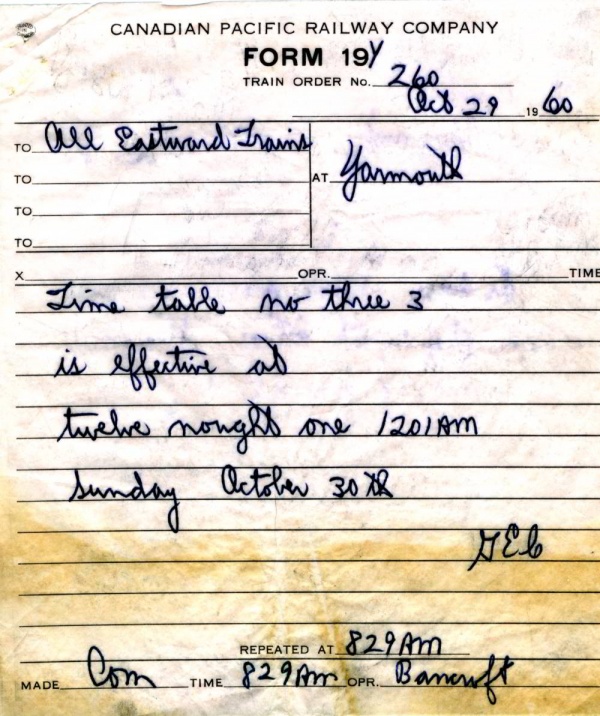 CANADIAN PACIFIC RAILWAY COMPANY
FORM 19Y
TRAIN ORDER No. 260
Oct 29 1960
TO All Eastward Trains
TO AT Yarmouth
TO
TO
X OPR. TIME
Time table no three 3
is effective at
twelve nought one 1201AM
Sunday October 30th
GEC
REPEATED AT 829AM
MADE Com TIME 829Am OPR. Bancroft